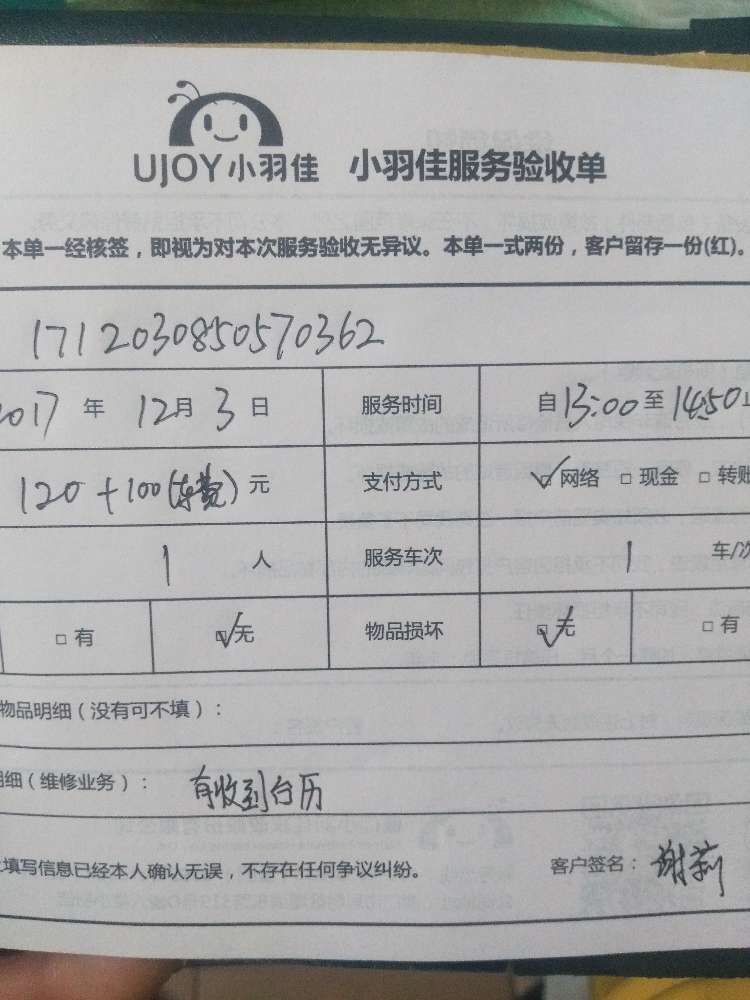 UJOY小羽佳 小羽佳服务验收单
本单一经核签，即视为对本次服务验收无异议。本单一式两份，客户留存一份(红)。
1712030850570362
2017 年 12月 3 日 服务时间 自13:00至1450止
120+100(车费)元 支付方式 ☑网络 □现金 □转账
1 人 服务车次 1 车/次
□有 ☑无 物品损坏 ☑无 □有
物品明细（没有可不填）：
明细（维修业务）： 有收到台历
填写信息已经本人确认无误，不存在任何争议纠纷。 客户签名：谢莉